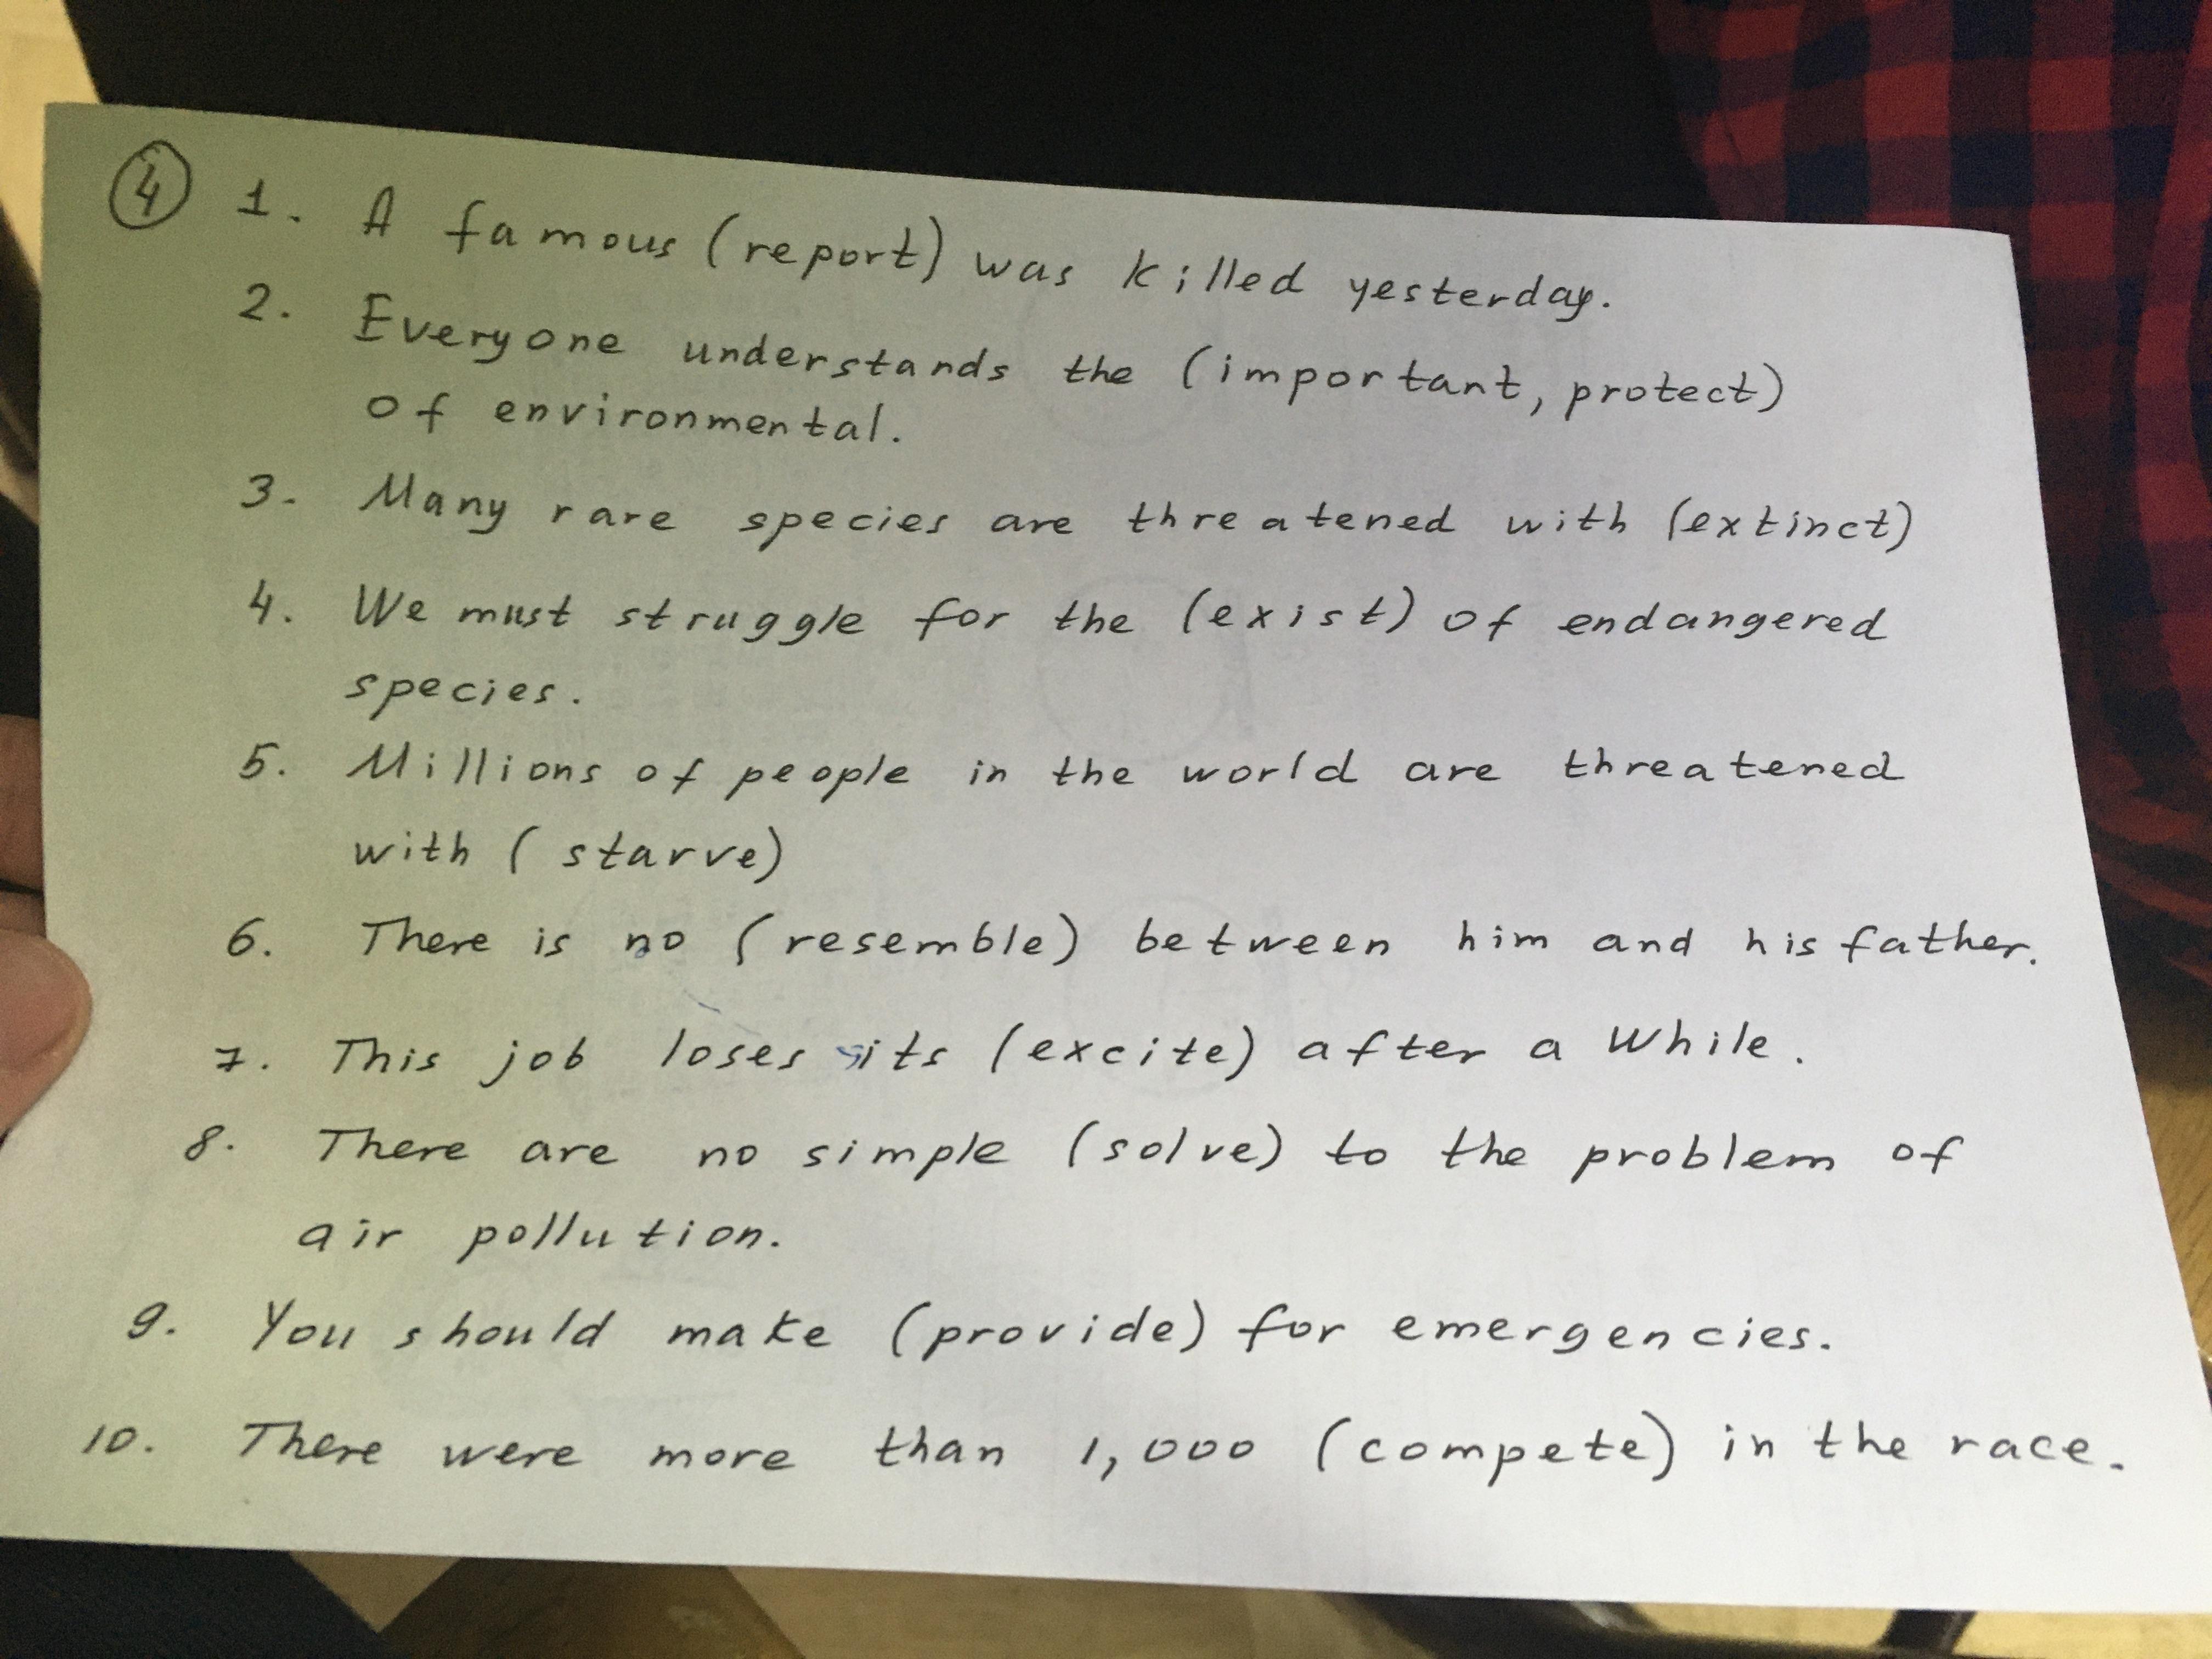 4 1. A famous (report) was killed yesterday.
2. Everyone understands the (important, protect)
of environmental.
3. Many rare species are threatened with (extinct)
4. We must struggle for the (exist) of endangered
species.
5. Millions of people in the world are threatened
with (starve)
6. There is no (resemble) between him and his father.
7. This job loses its (excite) after a While.
8. There are no simple (solve) to the problem of
air pollution.
9. You should make (provide) for emergencies.
10. There were more than 1,000 (compete) in the race.